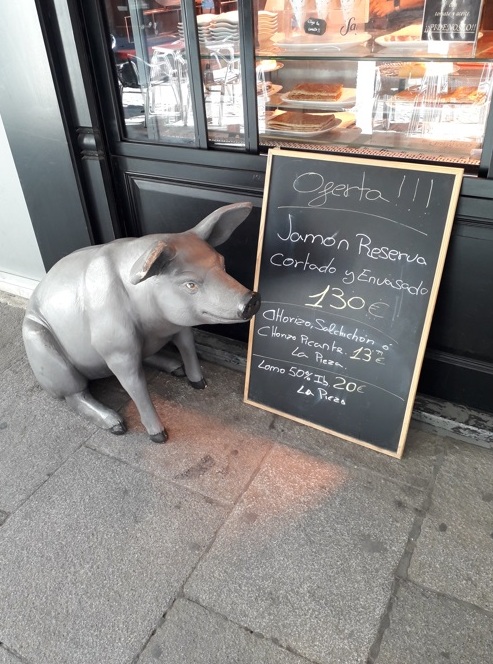 Oferta!!!
Jamón Reserva
Cortado y Envasado
130€
CHorizo, Salchichón ó
CHorizo Picante. 13€
La Pieza
Lomo 50% Ib 20€
La Pieza